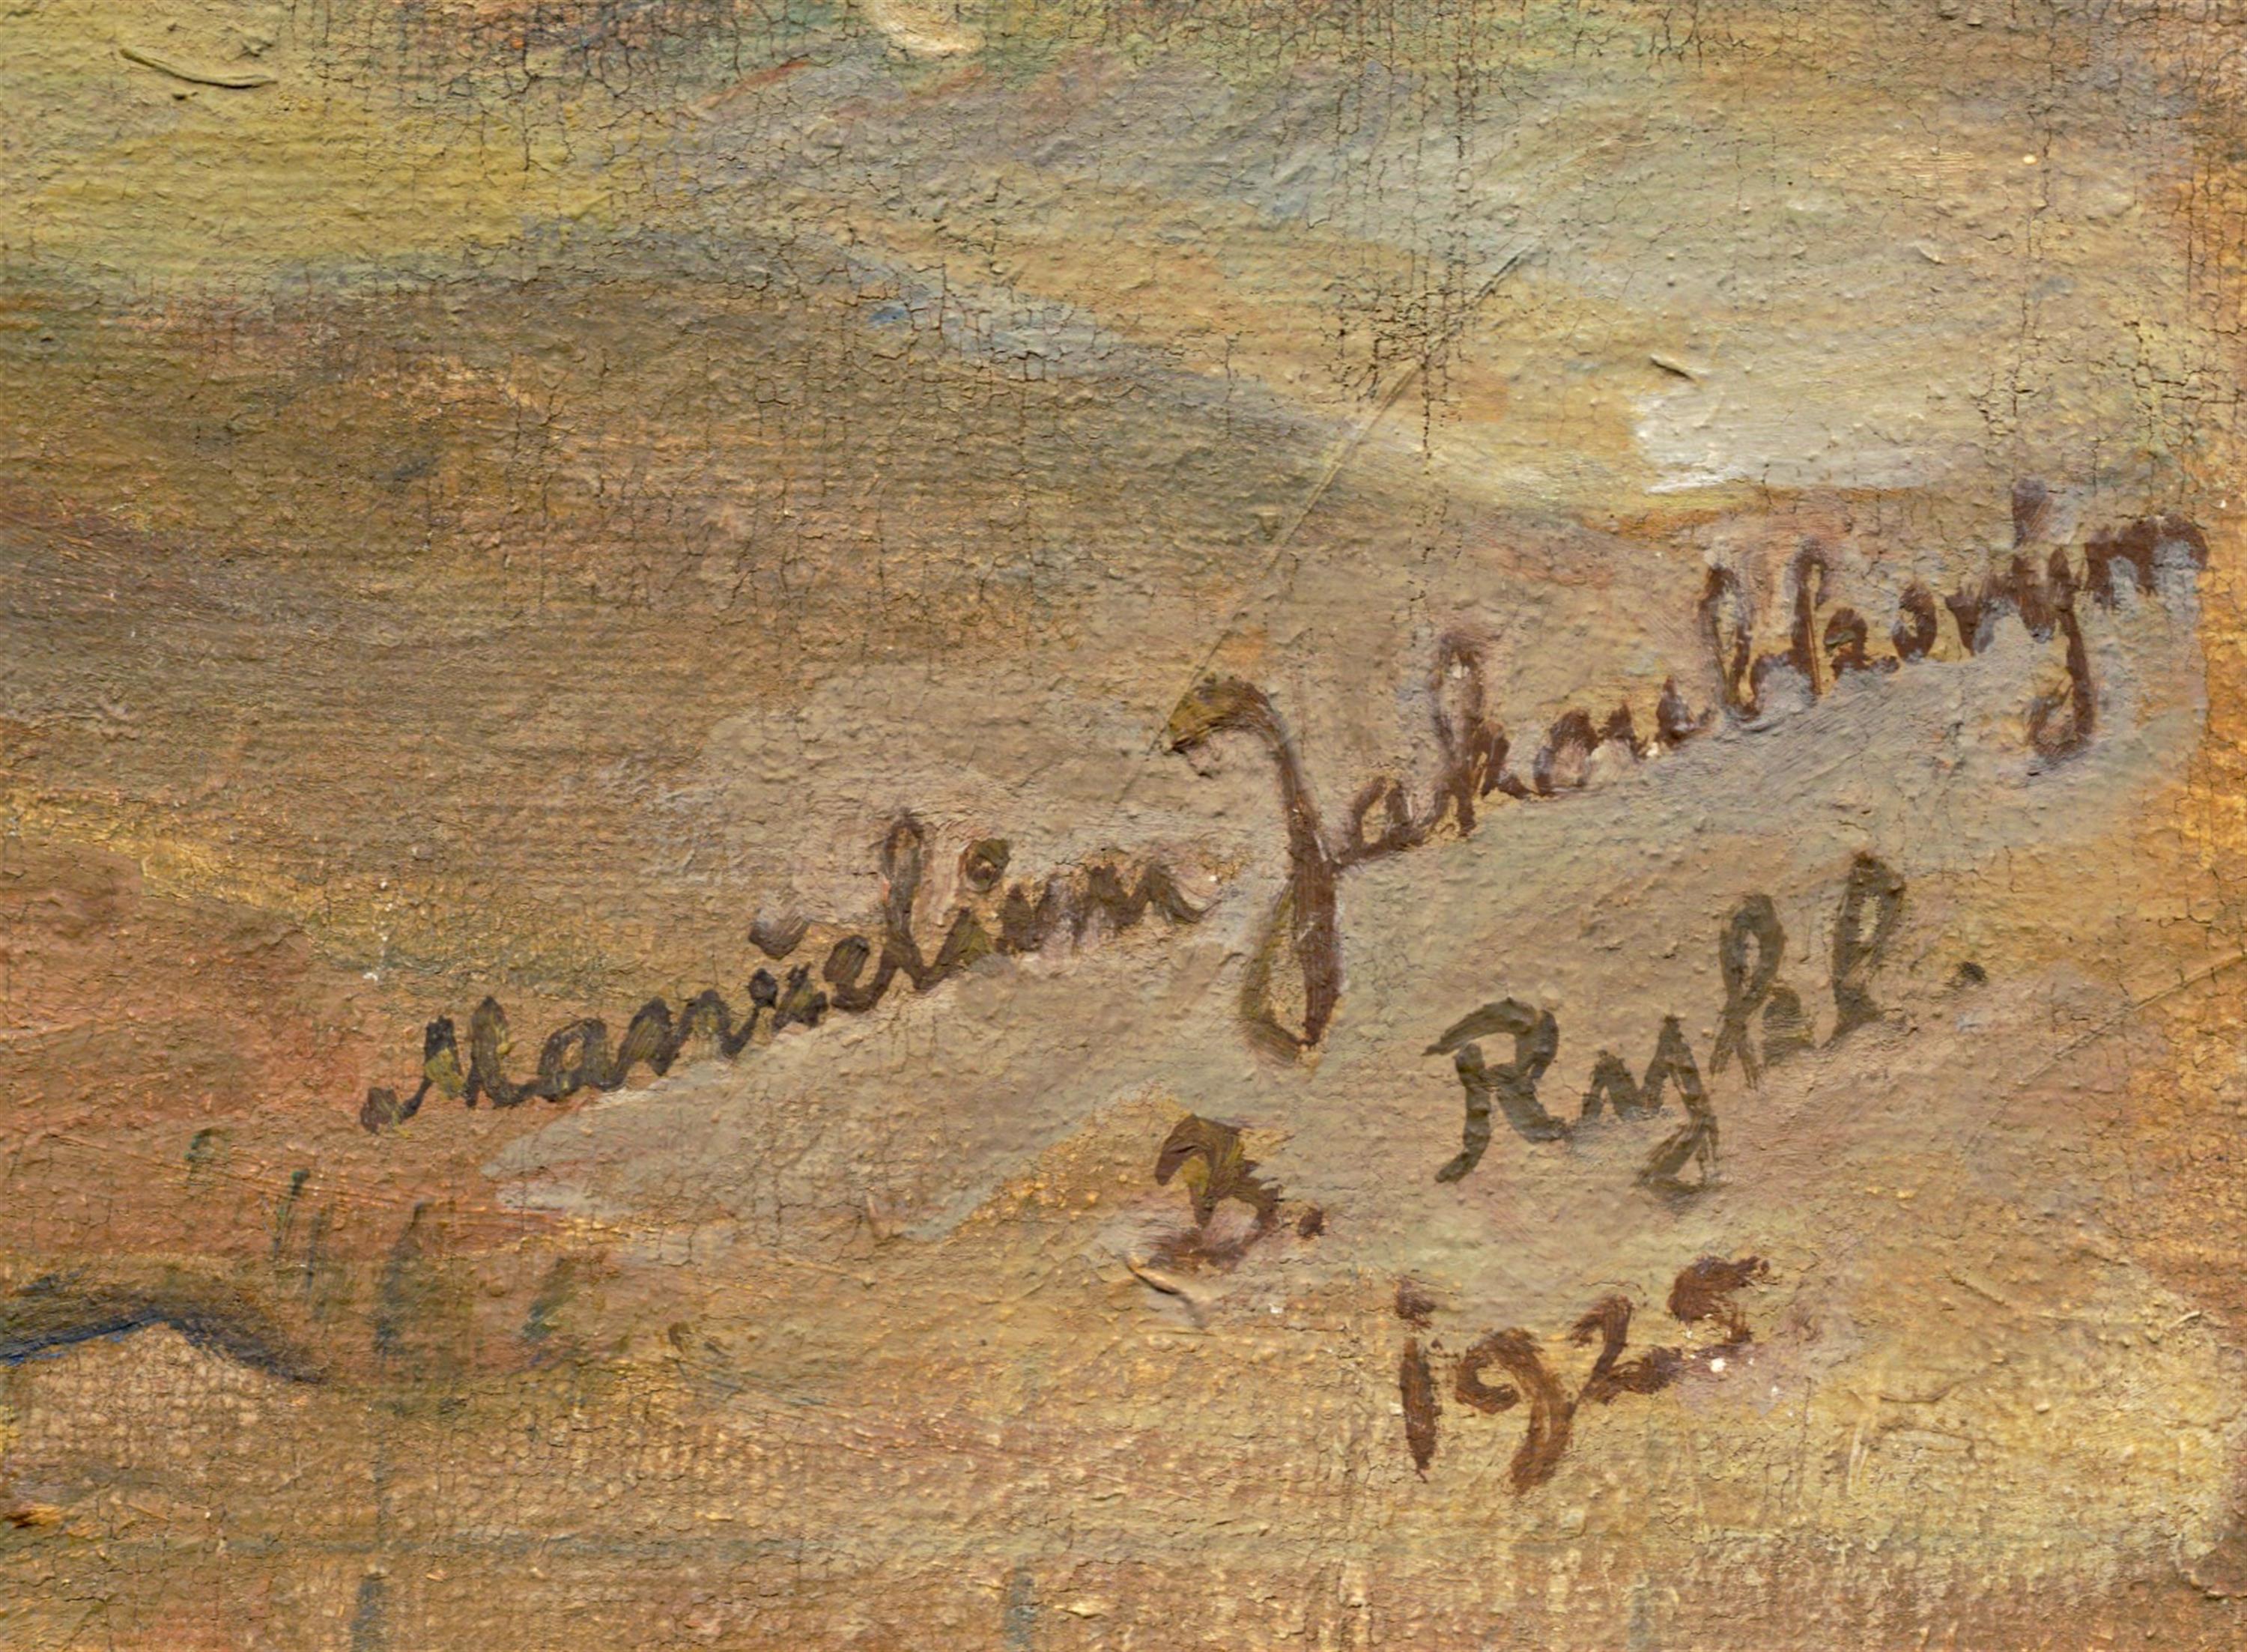 Manželům Jakoubkovým
B. Rykl.
1925